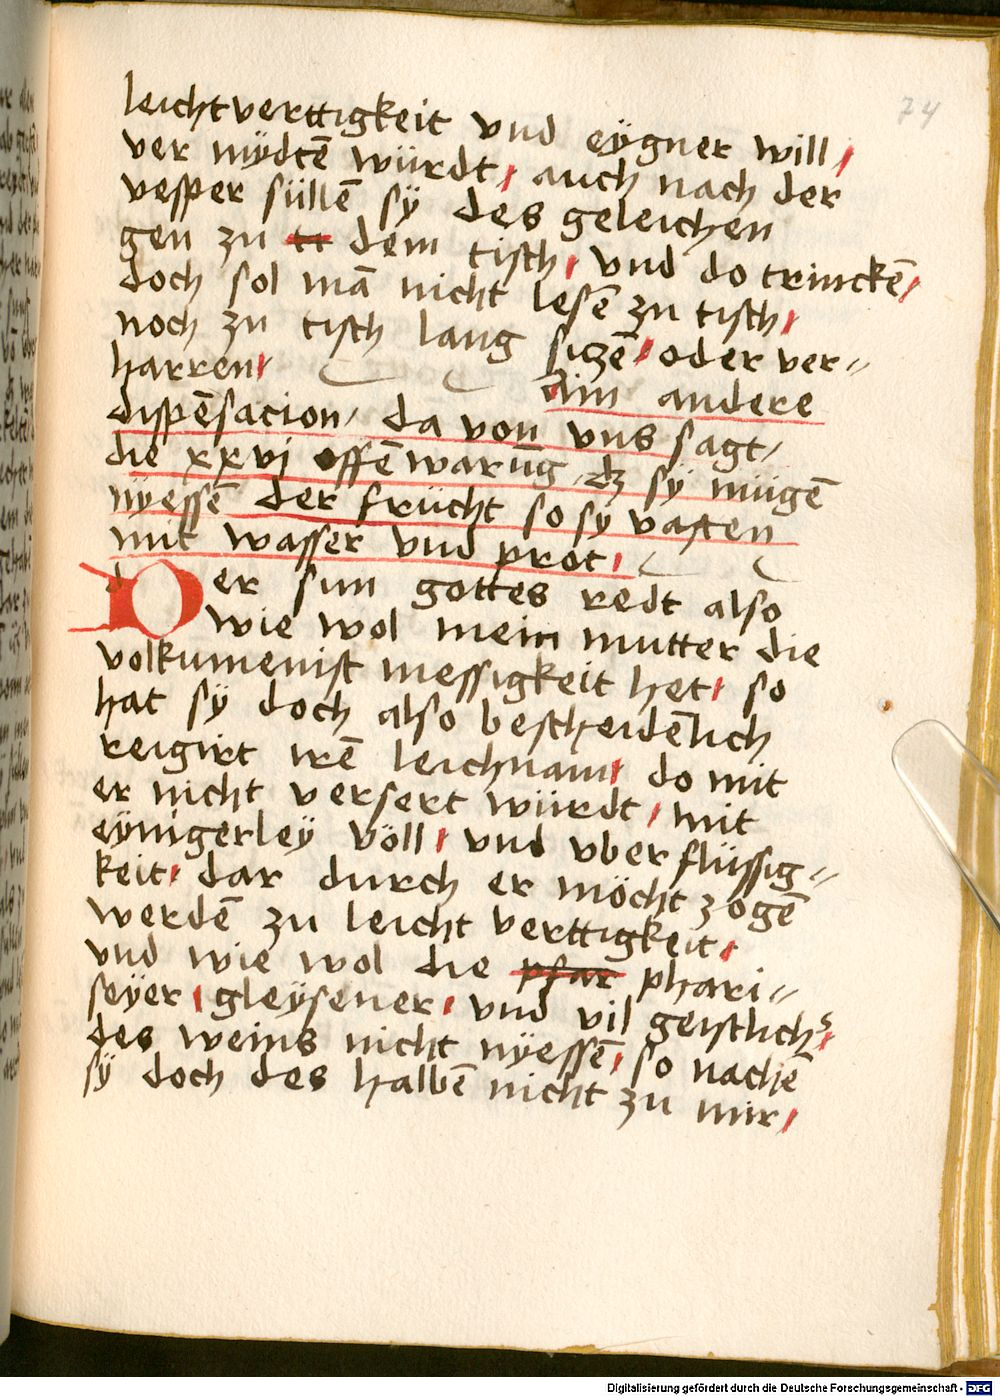 74
leichtverttigkeit vnd eÿgner will,
ver mÿdtē würdt, auch nach der
vesper süllē sÿ des geleichen
gen zu tt dem tisch, vnd do trinckē,
doch sol mā nicht lesē zu tisch,
noch zu tisch lang siczē, oder ver-//
harren,
Ain andere
dispēsacion, da von vns sagt,
die xxvj offēwarūg, dz sÿ mügē
nÿessē der frücht so sÿ vasten
mit wasser vnd prot,
Der sun gottes redt also
wie wol mein mutter die
volkumenist messigkeit het, so
hat sÿ doch also bescheidēlich
reigirt irē leichnam, do mit
er nicht versert würdt, mit
eÿnigerleÿ völl, vnd vberflüssig-//
keit, dar durch er möcht zogē
werdē zu leicht verttigkeit,
vnd wie wol die pfar phari-//
seÿer, gleÿsener, vnd vil geistlich
des weins nicht nÿessē, so nachē
sÿ doch des halbē nicht zu mir,
Digitalisierung gefördert durch die Deutsche Forschungsgemeinschaft - DFG